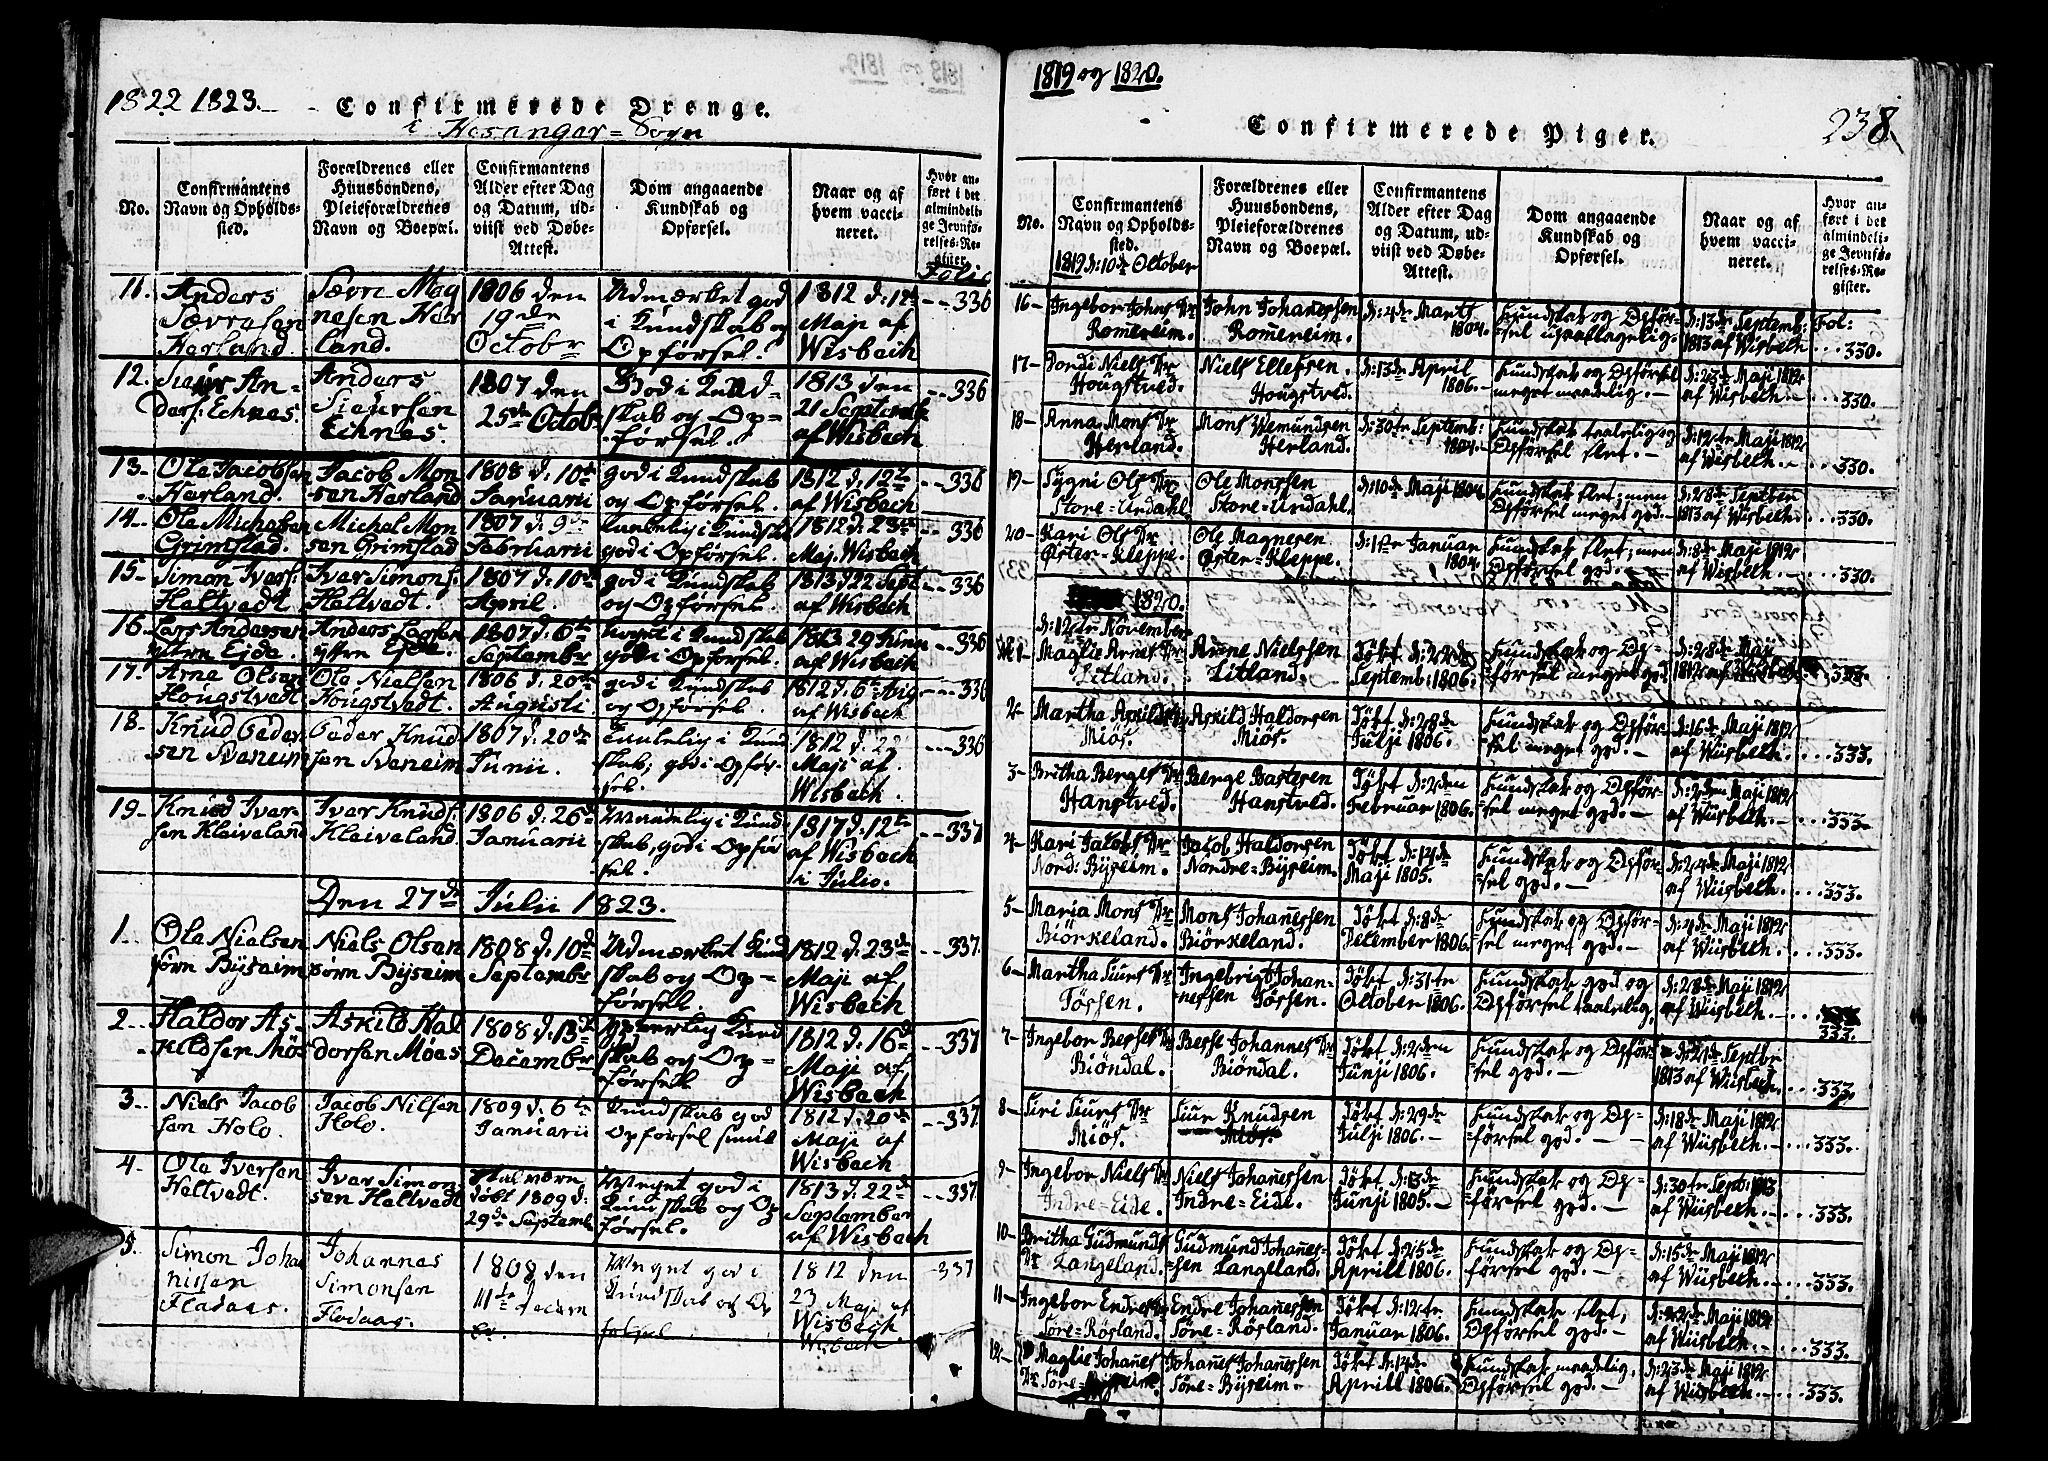 1822 1823. Confirmerede Drenge.
i Hosanger=Sogn
No.
Confirmantens Navn og Opholdssted.
Forældrenes eller Huusbondens, Pleieforældrenes Navn og Boepæl.
Confirmantens Alder efter Dag og Datum, udviist ved Døbe-Attest.
Dom angaaende Kundskab og Opførsel.
Naar og af hvem vaccineret.
Hvor anført i det almindelige Jevnførelses-Register.
Folio
11. Anders Sævresen Herland | Sævre Magnesen Herland. | 1806 den 19de Octobr | Udmærket god i Kundskab og Opførsel. | 1812 d: 12te Maji af Wisbach | 336
12. Siur Anders: Echnes | Anders Siursen Echnes. | 1807 den 25de Octobr | God i Kundskab og Opførsel. | 1813 den 21 Septembr af Wisbach | 336
13. Ole Jacobsen Herland. | Jacob Monsen Herland | 1808 d. 10de Januarii | god i Kundskab og Opførsel. | 1812 d. 12te af Wisbach | 336
14. Ole Michelsen Grimstad. | Michel Monsen Grimstad | 1807 d. 9de Februarii | taalelig i Kundsk god i Opførsel. | 1812 d. 23de Maj. Wisbach | 336
15. Simon Ivers: Heltvedt | Iver Simons: Heltvedt. | 1807 d. 10de April. | god i Kundskab og Opførsel. | 1813 d 22 Sept af Wisbach | 336
16. Lars Andersen ytre Eide | Anders Larsen ytre Eide. | 1807 d. 6te Septembr | meget i Kundskab god i Opførsel. | 1813 29 af Wisbach | 336
17. Arne Olsen Hougstvedt | Ole Nielsen Hougstvedt. | 1806 d. 20de Augusti | god i Kundskab og Opførsel. | 1812 d: 6te Aug af Wisbach | 336
18. Knud Pedersen Sveneim | Peder Knudsen Sveneim | 1807 d. 20de Junii. | Taalelig i Kundskab, god i Opførsel. | 1812 d. 22 Maji af Wisbach. | 336
19. Knud Iversen Kleiveland | Iver Knuds: Kleiveland. | 1806 d. 26de Januarii | Maadelig i Kundskab, god i Opførsel. | 1817 d. 12te af Wisbach i Julio. | 337
Den 27de Julii 1823.
1. Ole Nielsen sørn Byseim | Niels Olsen sørn Byseim | 1808 d. 10de Septembr | Udmærket Kundskab og Opførsel. | 1812 d. 23de Maji af Wisbach | 337.
2. Haldor Askildsen Miøs | Askild Haldorsen Miøes | 1808 d. 13de Decembr | Kundskab og Opførsel. | 1812 d. 16de Maji af Wisbach | 337
3. Niels Jacobsen Holo. | Jacob Nilsen Holo. | 1809 d. 6te Januarii | Kundskab god Opførsel | 1812 d. 20de Maji af Wisbach | 337
4. Ole Iversen Heltvedt. | Iver Simonsen Heltvedt | døbt 1809 d: 29de Septemb | Meget god i Kundskab og Opførsel. | 1813 d. 22de September af Wisbach | 337.
5. Simon Johannissen Fladaas. | Johannes Simonsen Flodaas. | 1808 den 11te Decembr. | Meget god i Kundskab og Opførsel. | 1812 den 23 Maji af Wisbach. Wisbach | 337
1819 og 1820.
Confirmerede Piger. 238.
No.
Confirmantens Navn og Opholdssted.
Forældrenes eller Huusbondens, Pleieforældrenes Navn og Boepæl.
Confirmantens Alder efter Dag og Datum, udviist ved Døbe-Attest.
Dom angaaende Kundskab og Opførsel.
Naar og af hvem vaccineret.
Hvor anført i det almindelige Jevnførelses-Register.
1819 d: 10de October
16 Ingebor Johns Dr Romereim. | John Johanessen Romereim. | d: 4de Marts 1804. | Kundskab og Opførsel upaaklagelig. | d: 13de Septemb: 1813 af Wiisbech | Fol: 330.
17 Pordi Niels Dr Hougstved. | Niels Ellefsen. Hougstved. | d: 13de April 1806. | Kundskab og Opførsel meget maadelig. | d: 27de Maji 1812 af Wiisbech. | 330.
18 Anna Mons Dr Herland. | Mons Wemundsen Herland. | d: 30te Septemb: 1804. | Kundskab taalelig og Opførsel slet. | d: 12te Maji 1812 af Wiisbech. | 330.
19 Sygni Ols Dr Store=Urdahl. | Ole Monssen Store=Urdahl. | d: 10de Maji 1804. | Kundskab slet; men Opførsel meget god. | d: 28de Septber 1813 af Wiisbech. | 330.
20 Kari Ols Dr Øster=Kleppe. | Ole Magnesen Øster=Kleppe. | d: 1te Januar 1804. | Kundskab slet; men Opførsel god. | d: 8de Maji 1812 af Wiisbech. | 330.
1820.
d: 12te November
1 Maglie Arnes Dr Litland. | Arne Nielssen Litland. | Døbt d: 22de Septemb: 1806. | Kundskab og Opførsel meget god. | d: 28de Maji 1812 af Wiisbech | 333.
2 Martha Askilds Dr Miøs. | Askild Haldorsen Miøs. | Døbt d: 28de Julji 1806. | Kundskab og Opførsel meget god. | d: 16de Maji 1812 af Wiisbech. | 333.
3 Britha Berges Dr Hanstved. | Berge Bastesen Hanstved. | Døbt d: 2den Februar 1806. | Kundskab og Opførsel meget god. | d: 2den Maji 1812 af Wiisbech. | 333.
4 Kari Jacobs Dr Nord: Byseim. | Jacob Haldorsen Nordre=Byseim. | Døbt d: 14de Maji 1805. | Kundskab og Opførsel god. | d: 24de Maji 1812 af Wiisbech. | 333.
5 Maria Mons Dr Biørkeland. | Mons Johanessen Biørkeland. | Døbt d: 8de December 1806. | Kundskab og Opførsel meget god. | d: 4de Maji 1812 af Wiisbech. | 333.
6 Martha Siurs Dr Tossen. | Ingebrigt Johannessen Tossen. | Døbt d: 31te October 1806. | Kundskab god og Opførsel taalelig. | d: 28de Maji 1812 af Wiisbech. | 333.
7 Ingebor Besses Dr Biøndal. | Besse Johannes Biøndal. | Døbt d: 2den Junji 1806. | Kundskab og Opførsel god. | d: 21de Septbr 1813 af Wiisbech. | 333.
8 Siri Siurs Dr Miøs. | Siur Knudsen Miøs. | Døbt d: 29de Julji 1806. | Kundskab og Opførsel god. | d: 18de Maji 1812 af Wiisbech. | 333.
9 Ingebor Niels Dr Indre=Eide. | Niels Johanessen Indre=Eide. | Døbt d: 13de Junji 1805. | Kundskab og Opførsel god. | d: 30te Sept: 1813 af Wiisbech. | 333.
10 Britha Gudmunds Dr Langeland. | Gudmund Johanessen Langeland. | Døbt d: 25de Aprill 1806. | Kundskab og Opførsel god. | d: 15de Maji 1812 af Wiisbech. | 333.
11 Ingebor Endres Dr Søre=Røsland. | Endre Johanessen Søre=Røsland. | Døbt d: 12te Januar 1806. | Kundskab slet, Opførsel god. | d: 22de Maji 1812 af Wiisbech. | 333.
12 Maglie Johanes Dr Søre=Byseim. | Johanes Johanessen Søre=Byseim. | Døbt d: 14de Aprill 1806. | Kundskab maadelig, Opførsel god. | d: 23de Maji 1812 af Wiisbech. | 333.